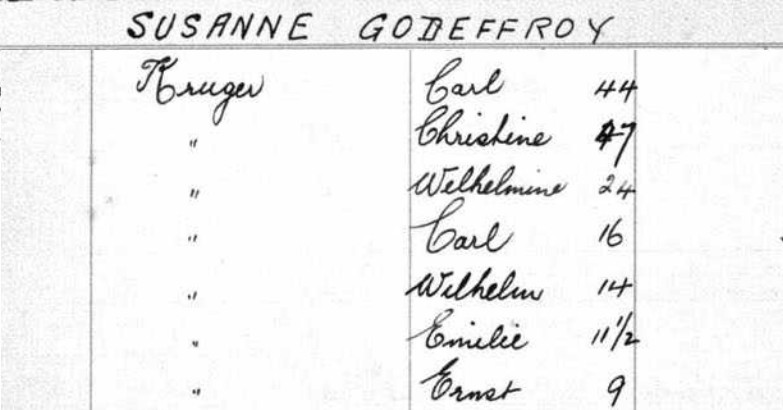 SUSANNE GODEFFROY
Kruger Carl 44
" Christine 47
" Wilhelmine 24
" Carl 16
" Wilhelm 14
" Emilie 11 1/2
" Ernst 9